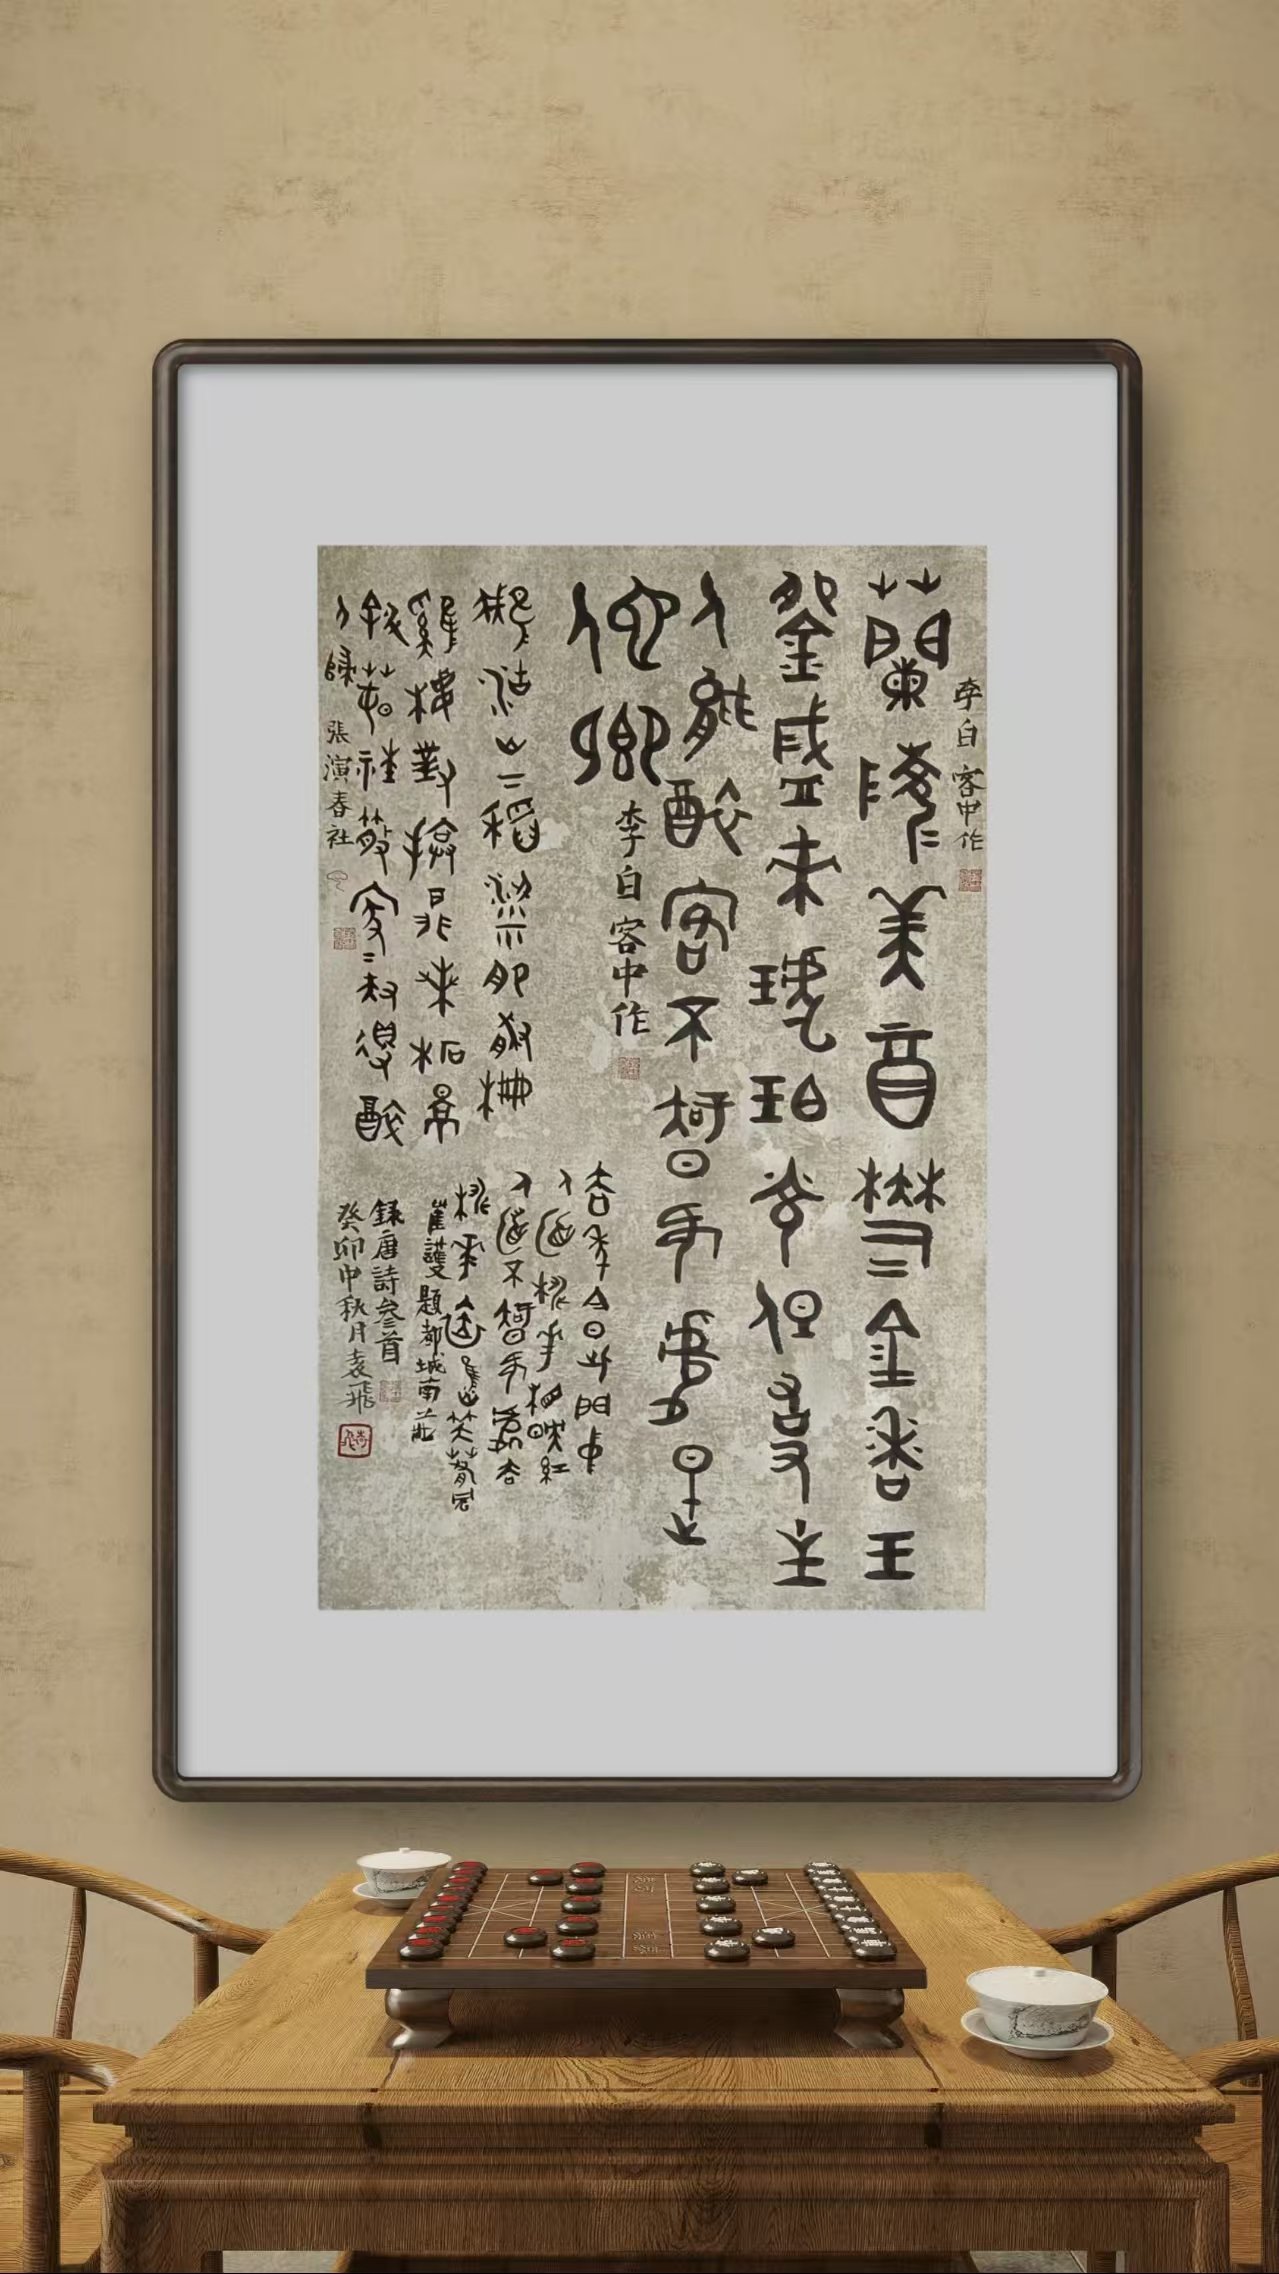 李白 客中作
蘭陵美酒鬱金香玉
鋺盛來琥珀光但使主
人能醉客不知何處是
他鄉
李白客中作
鵝湖山下稻粱肥豚柵
雞棲對掩扉桑柘影
斜春社散家=扶得醉
人歸
張演春社
去年今日此門中
人面桃花相映紅
人面不知何處去
桃花依舊笑春風
崔護題都城南莊
録唐詩叁首
癸卯中秋月袁飛